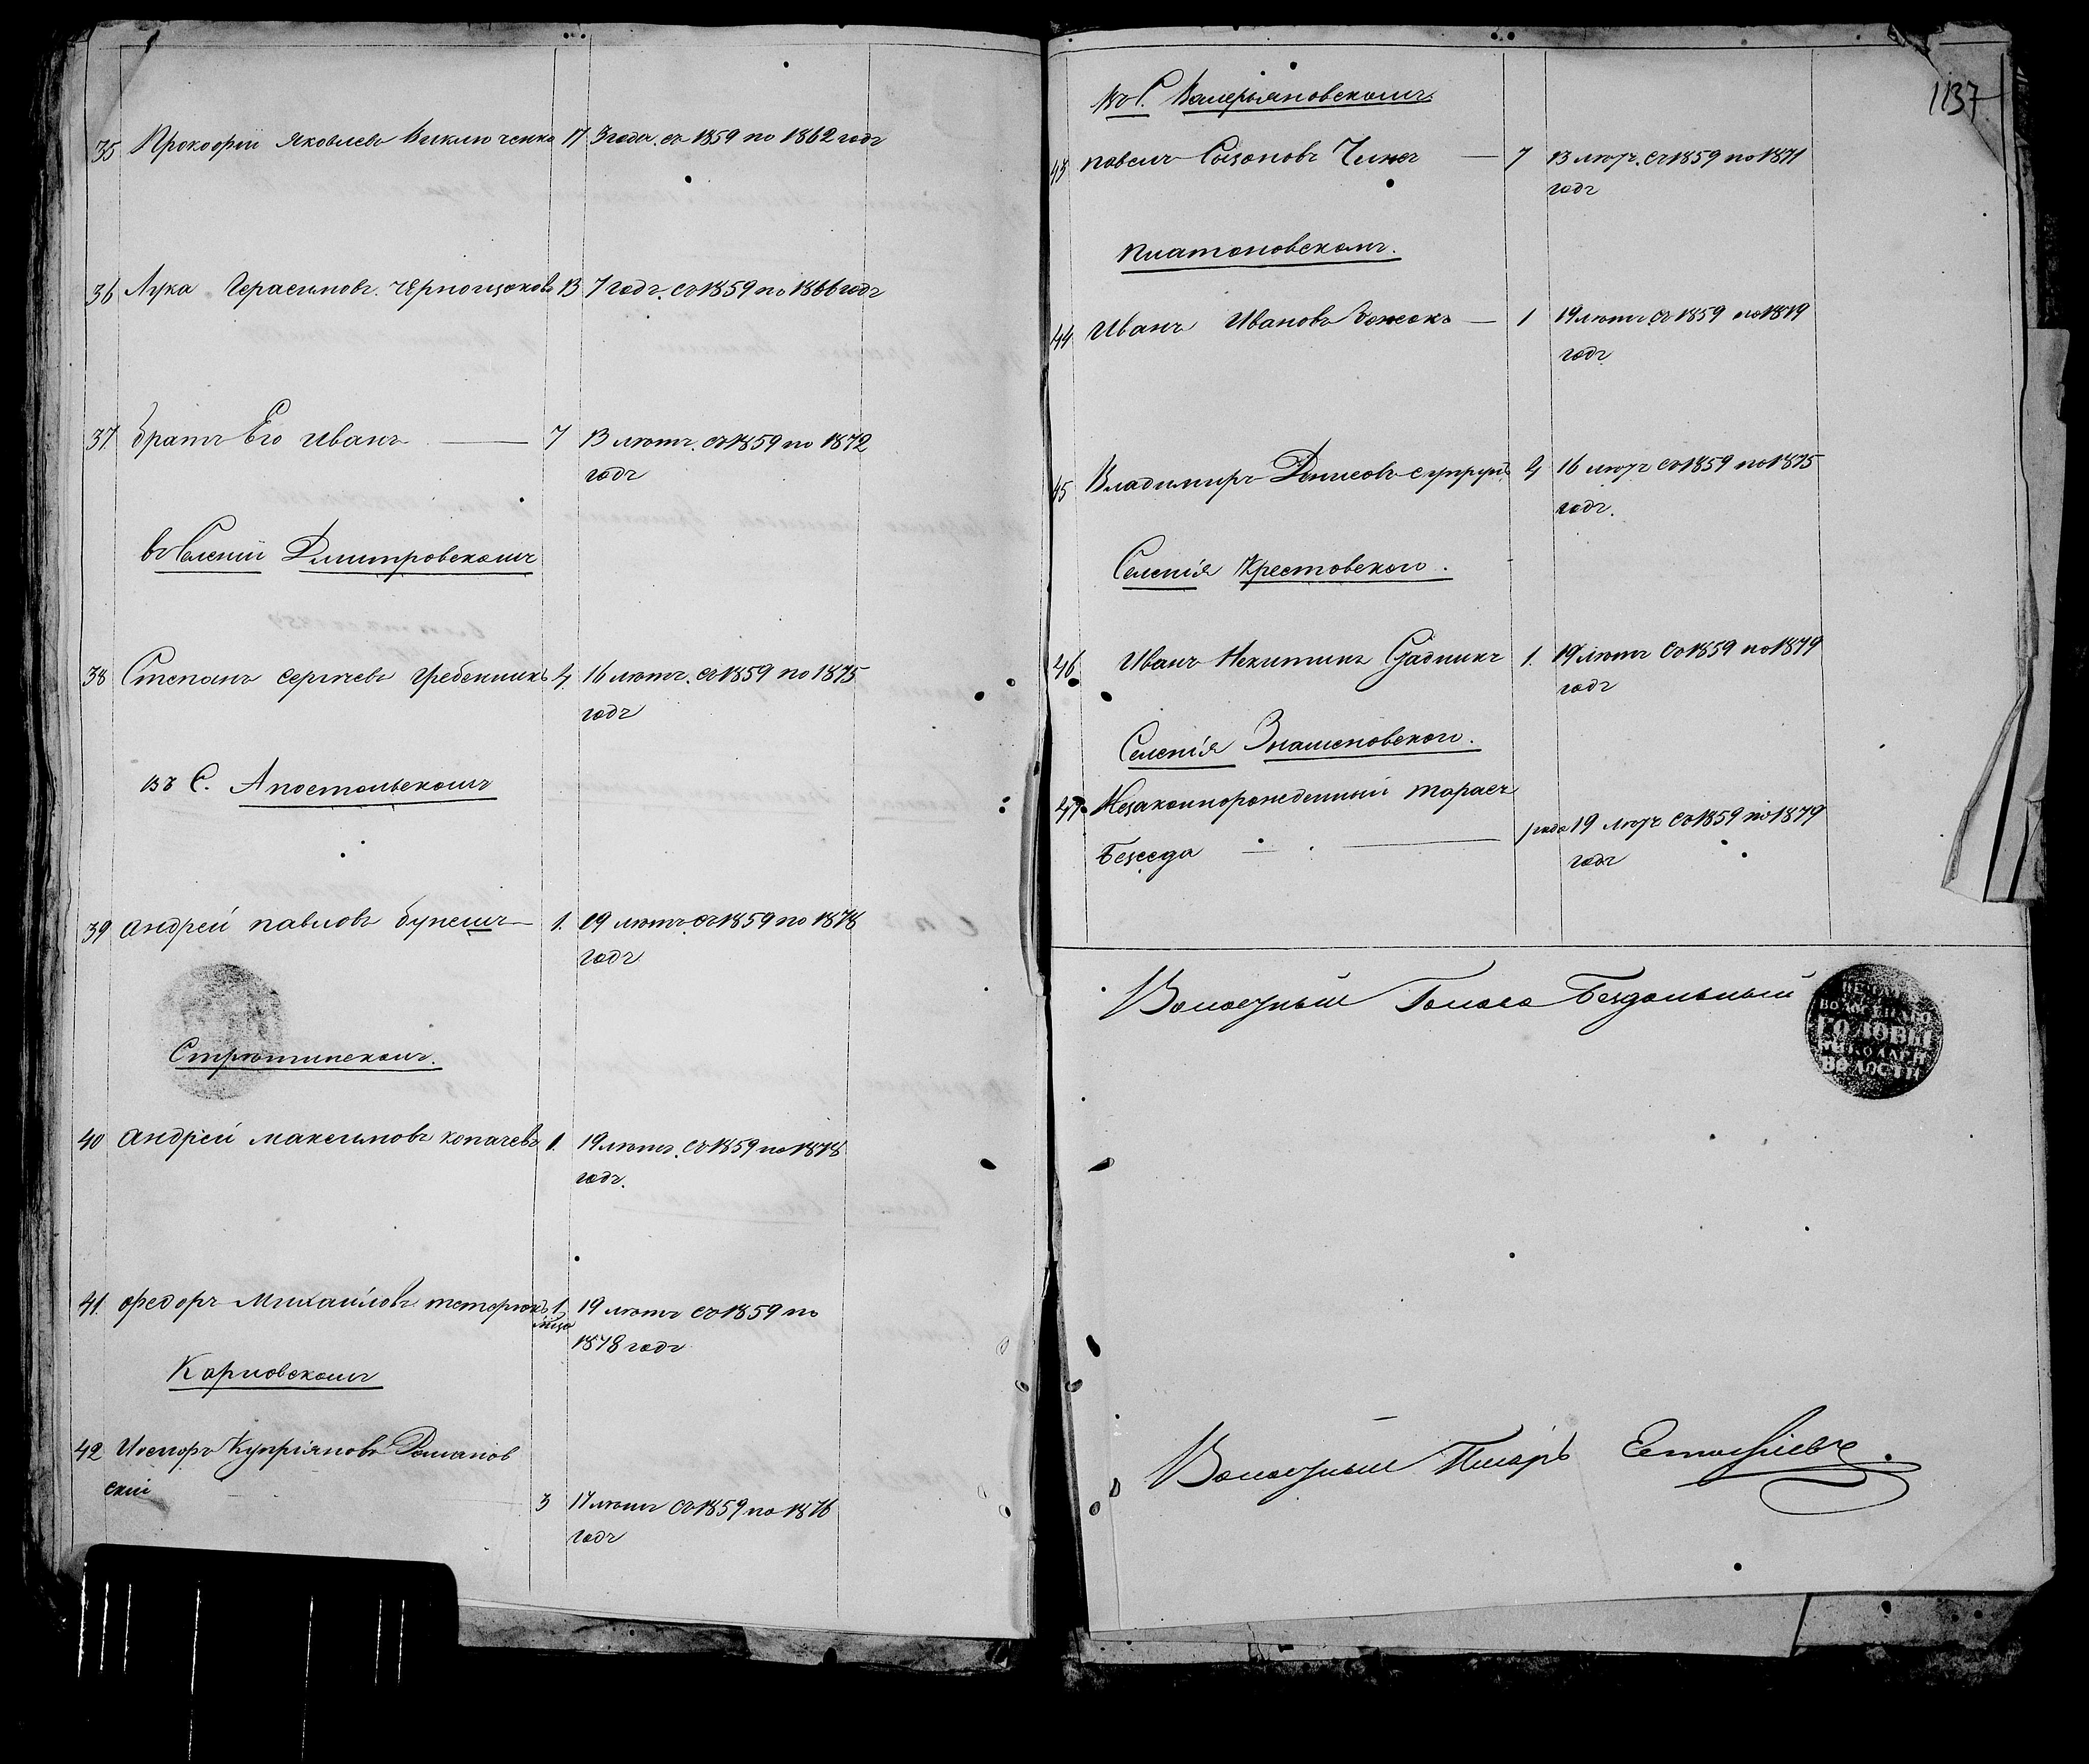 35 Прокофий Яковлевъ Виключенко 17 3 года. съ 1859 по 1862 годъ
36 Лука Герасимовъ. Чернощоковъ 13 7 годъ. съ 1859 по 1866 годъ
37. братъ Его Иванъ 7 13 лютъ. съ 1859 по 1872
годъ
въ Селеніи Дмитровскомъ
38 Степанъ Сергѣевъ Гребенникъ 4. 16 лютъ. съ 1859 по 1875
годъ
въ С. Апостольскомъ
39 Андрей Павловъ 1. 19 лютъ. съ 1859 по 1878
годъ
40 Андрей Максимовъ Копачевъ 1. 19 лютъ. съ 1859 по 1878
годъ.
41. Федоръ Михайловъ Тетерюкъ 1. 19 лютъ съ 1859 по
мѣсяц
1878 годъ
42 Несторъ Купріяновъ Романов
скій
3 17 лютъ съ 1859 по 1876
годъ
1137
Въ С. Валерьяновскомъ
43 Павелъ Сазоновъ 7 13 лютъ. съ 1859 по 1871
годъ
Платоновскомъ.
44 Иванъ Ивановъ 1 19 лютъ съ 1859 по 1879
годъ
45 Владимиръ Денисовъ 4 16 лютъ съ 1859 по 1875
годъ.
Селенія Крестовскаго.
46 Иванъ Никитинъ 1. 19 лютъ съ 1859 по 1879
годъ
Селенія Знаменовскаго.
47. Незаконнорожденный Тарасъ
Безседа
19 лютъ съ 1859 по 1879
годъ
Волостный Голова Бездольный
ПЕЧАТЬ
ВОЛОСТНАГО
ГОЛОВЫ
ВОЛОСТИ
Волостный Писарь